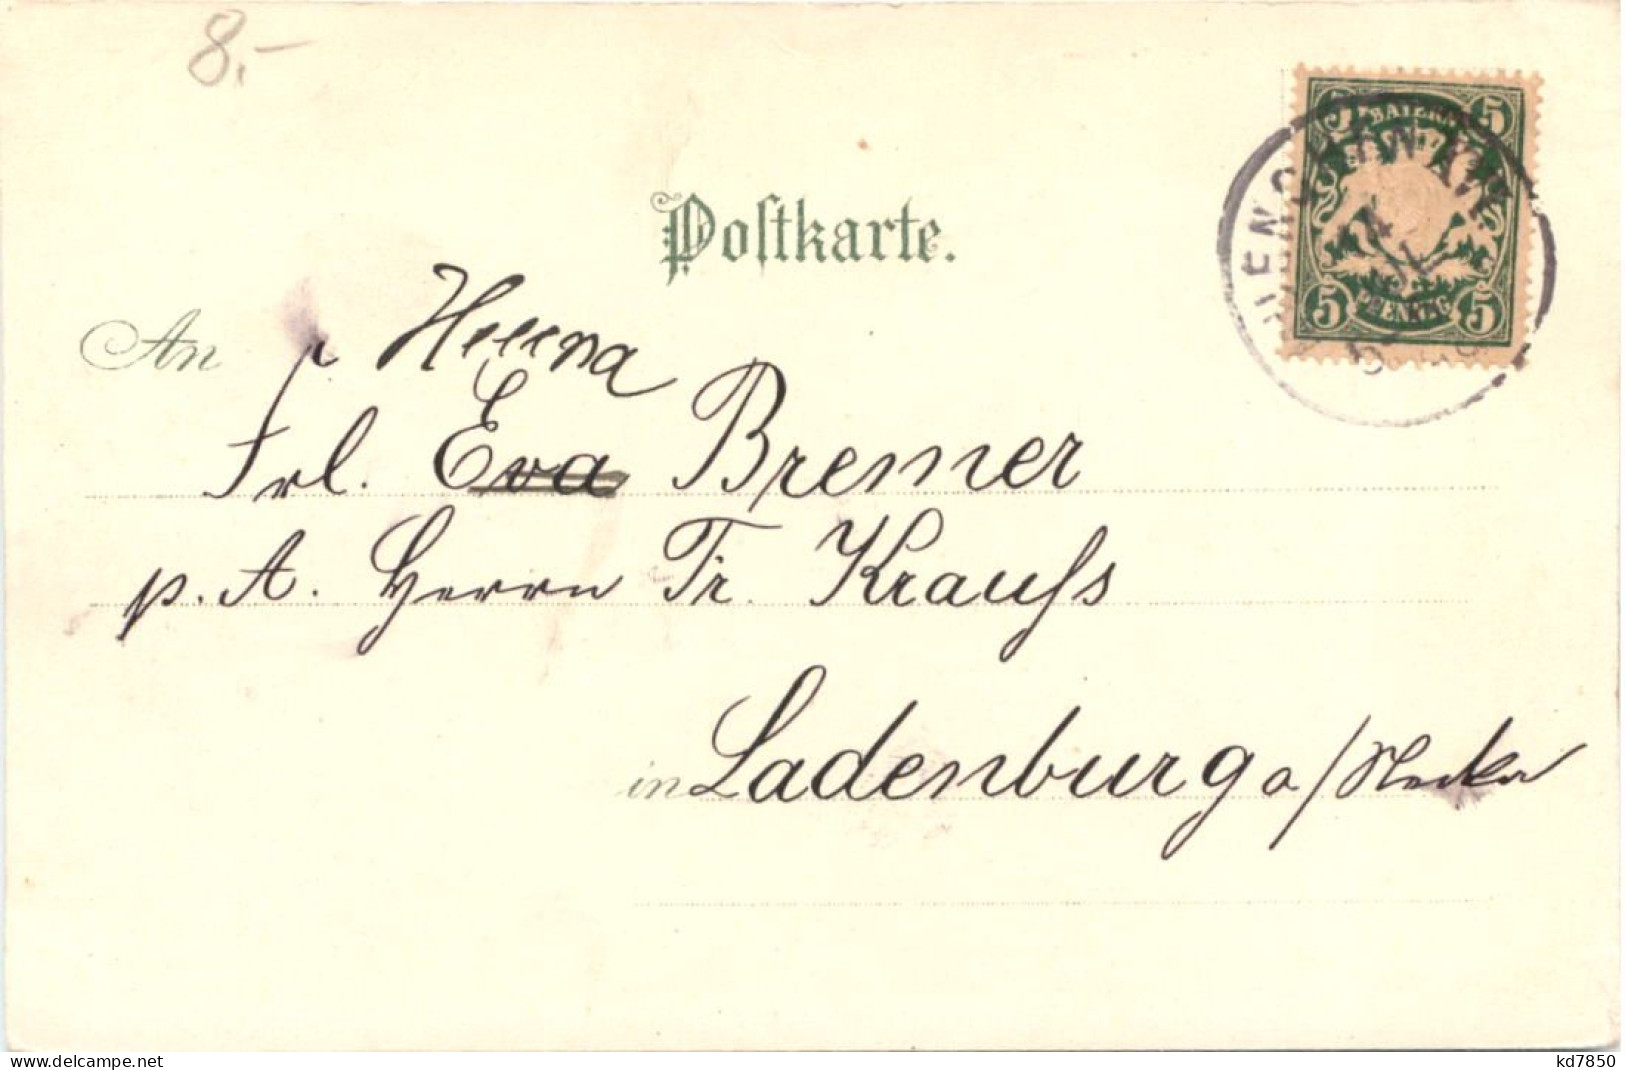 8.-
Postkarte.
5 BAYERN 5
5 PFENNIG 5
An
Frl. Eva Bremer
p. A. Herrn Fr. Krauss
in Ladenburg a/Neckar
www.delcampe.net
kd7850